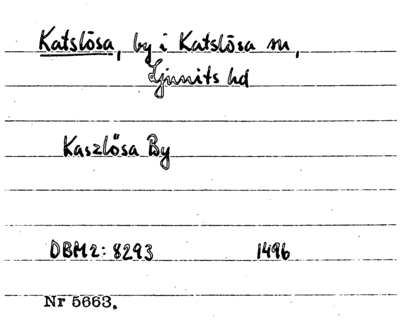 Katslösa, by i Katslösa sn,
Ljunits hd
Kaszlősa By
DBM2: 8293 1496
Nr 5663.